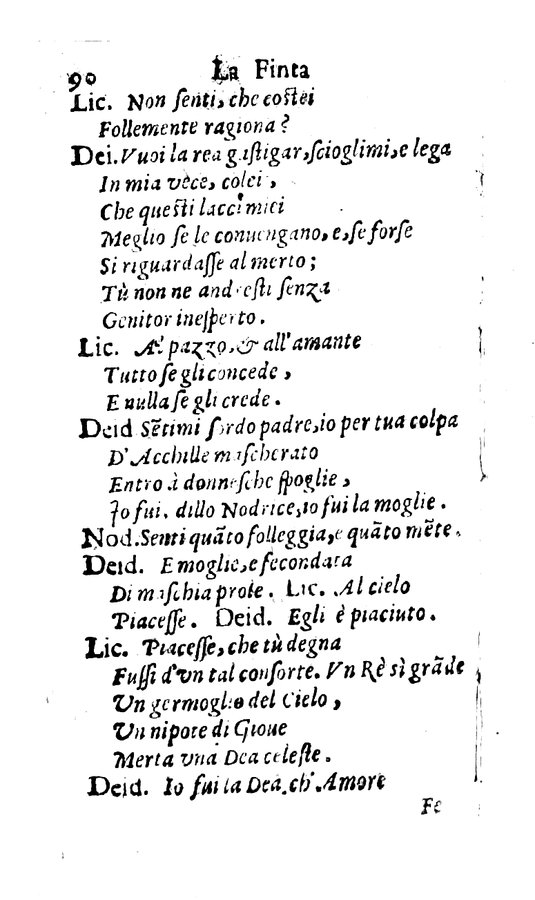 90 La Finta
Lic. Non ſenti, che coſtei
Follemente ragiona?
Dei. Vuoi la rea gaſtigar, ſcioglimi, e lega
In mia vece, colei,
Che queſti lacci miei
Meglio ſe le conuengano, e, ſe forſe
Si riguardaſſe al merto;
Tù non ne andreſti ſenza
Genitor ineſperto.
Lic. A' pazzo, & all'amante
Tutto ſe gli concede,
E nulla ſe gli crede.
Deid Sẽtimi ſordo padre, io per tua colpa
D'Acchille maſcherato
Entro à donneſche ſpoglie,
Io fui, dillo Nodrice, io fui la moglie.
Nod. Senti quãto folleggia, e quãto mẽte.
Deid. E moglie, e fecondata
Di maſchia prole. Lic. Al cielo
Piaceſſe. Deid. Egli è piaciuto.
Lic. Piaceſſe, che tù degna
Fuſſi d'vn tal conſorte. Vn Rè sì grãde
Un germoglio del Cielo,
Un nipote di Gioue
Merta vna Dea celeſte.
Deid. Io fui la Dea, ch'Amore
Fe